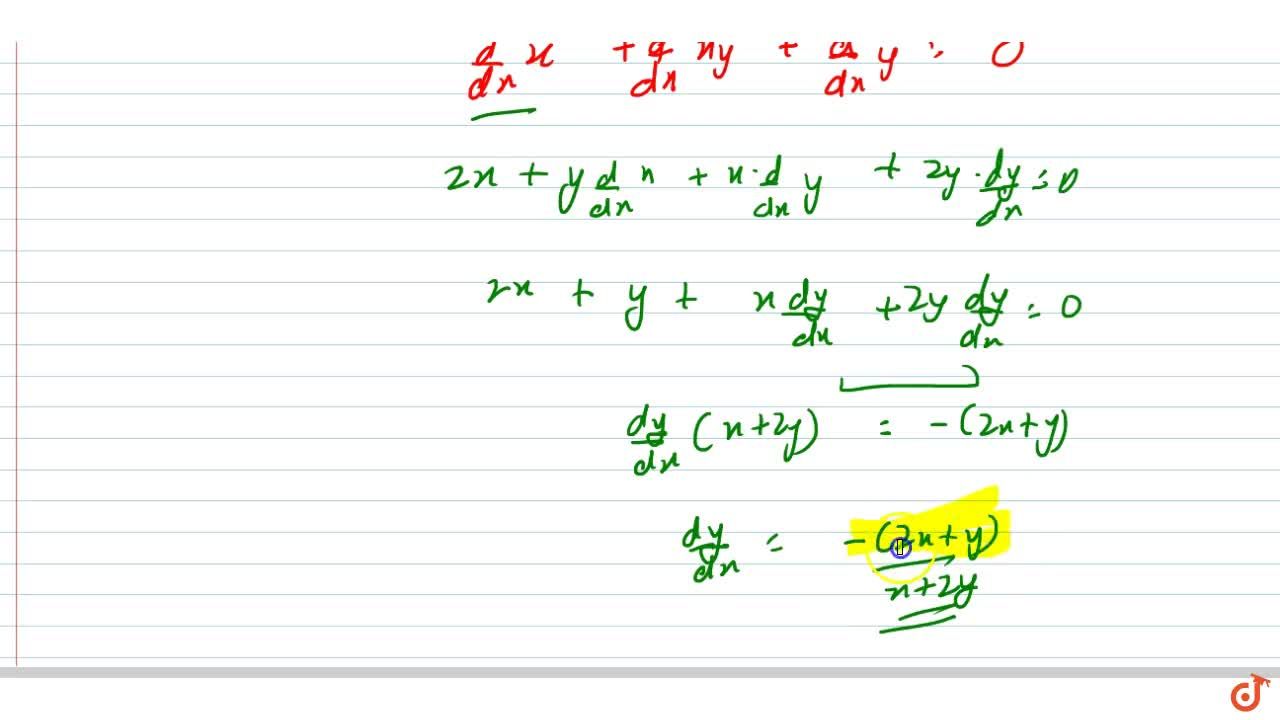 d/dx x + d/dx xy + d/dx y = 0
2x + y d/dx x + x · d/dx y + 2y · dy/dx = 0
2x + y + x dy/dx + 2y dy/dx = 0
dy/dx (x+2y) = -(2x+y)
dy/dx = -(2x+y)/x+2y